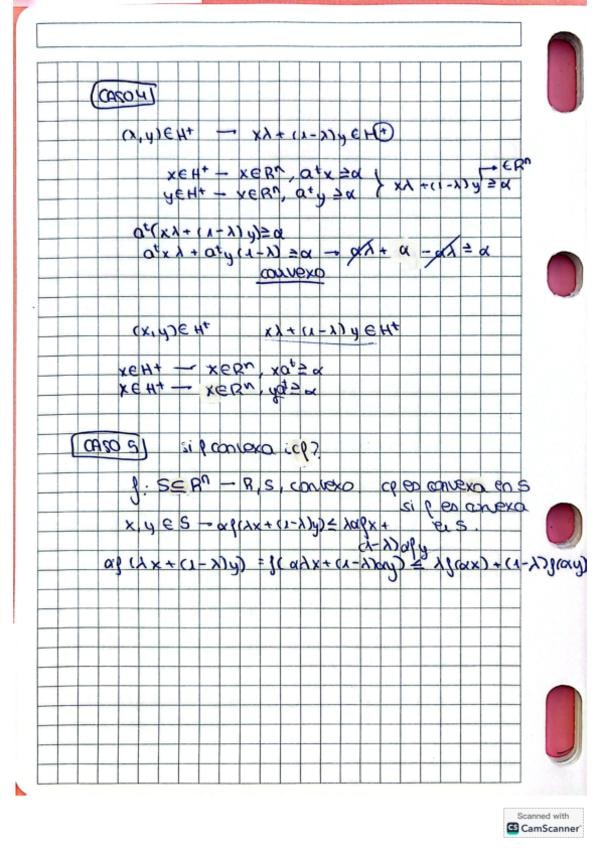 CASO 4
(x,y)∈H⁺ — xλ+(1-λ)y∈H⁺
x∈H⁺ — x∈Rⁿ, aᵗx≥α
y∈H⁺ — y∈Rⁿ, aᵗy≥α } xλ+(1-λ)y≥α → ∈Rⁿ
aᵗ(xλ+(1-λ)y)≥α
aᵗxλ+aᵗy(1-λ)≥α → αλ+α-αλ≥α
convexo
(x,y)∈H⁺ xλ+(1-λ)y∈H⁺
x∈H⁺ — x∈Rⁿ, xaᵗ≥α
x∈H⁺ — x∈Rⁿ, yaᵗ≥α
CASO 5 si f convexa ¿cf?
f: S⊆Rⁿ — R, S, convexo cf es convexa en S
si f es convexa
x,y∈S → αf(λx+(1-λ)y)≤λαfx+ en S.
(1-λ)αfy
αf(λx+(1-λ)y)=f(αλx+(1-λ)αy)≤λf(αx)+(1-λ)f(αy)
Scanned with
CS CamScanner